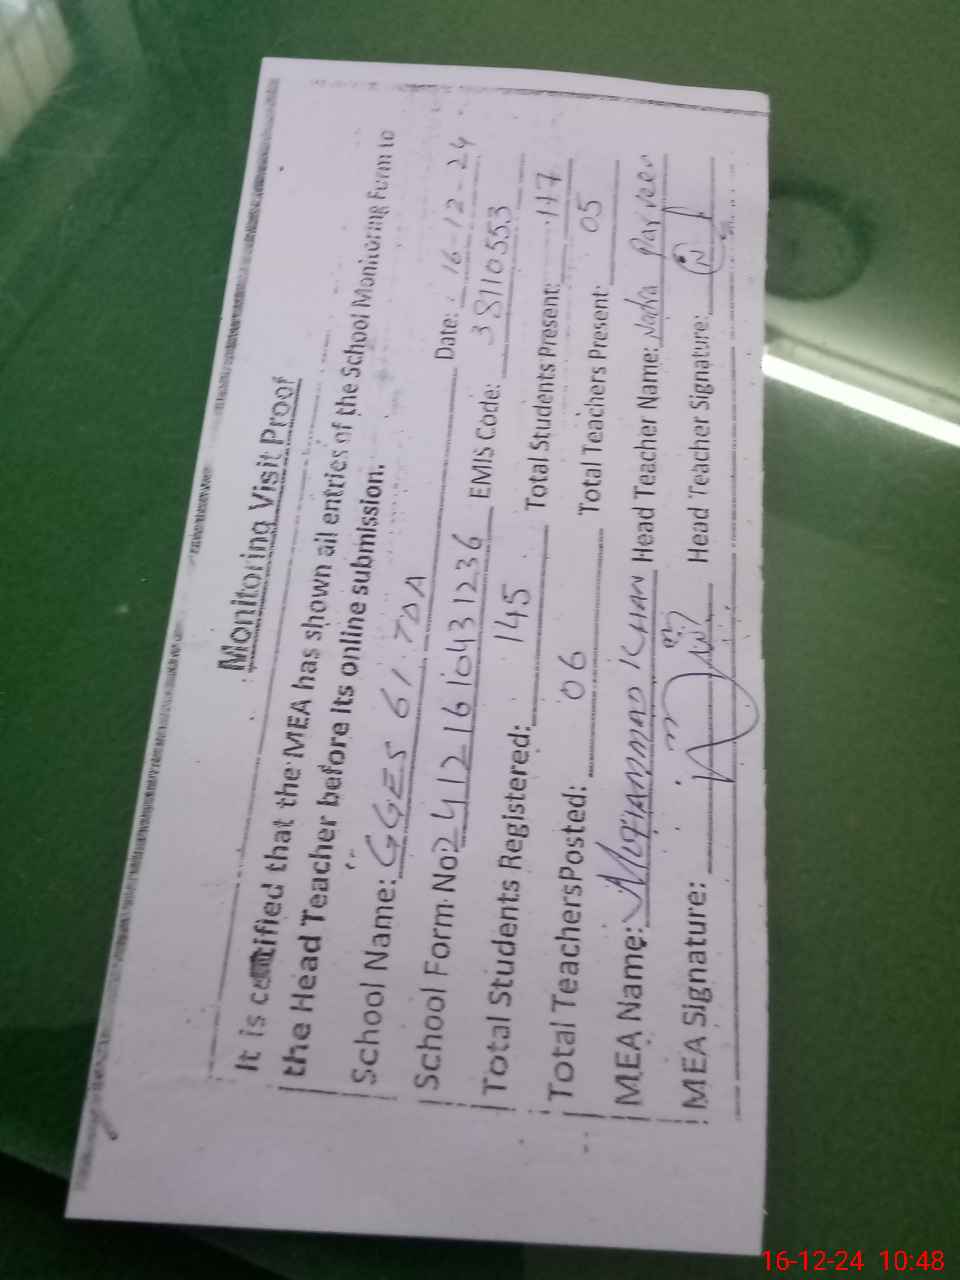 Monitoring Visit Proof
It is certified that the MEA has shown all entries of the School Monitoring Form to
the Head Teacher before its online submission.
School Name: GGES 61 TDA Date: 16-12-24
School Form No 24121610431236 EMIS Code: 38110553
Total Students Registered: 145 Total Students Present: 117
Total Teachers Posted: 06 Total Teachers Present: 05
MEA Name: MOHAMMAD KHAN Head Teacher Name: Parveen
MEA Signature: Head Teacher Signature:
16-12-24 10:48